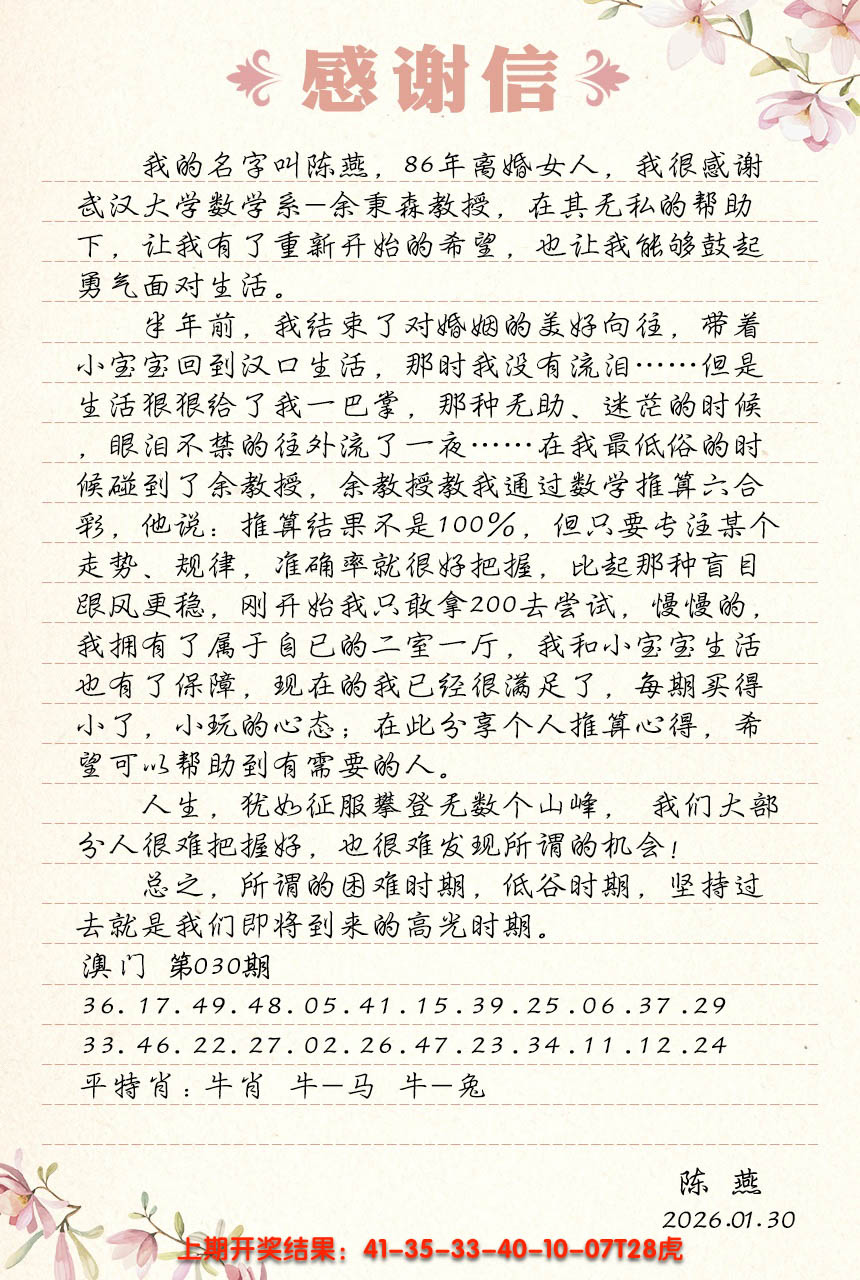 感谢信
我的名字叫陈燕，86年离婚女人，我很感谢
武汉大学数学系—余秉森教授，在其无私的帮助
下，让我有了重新开始的希望，也让我能够鼓起
勇气面对生活。
半年前，我结束了对婚姻的美好向往，带着
小宝宝回到汉口生活，那时我没有流泪……但是
生活狠狠给了我一巴掌，那种无助、迷茫的时候
，眼泪不禁的往外流了一夜……在我最低俗的时
候碰到了余教授，余教授教我通过数学推算六合
彩，他说：推算结果不是100%，但只要专注某个
走势、规律，准确率就很好把握，比起那种盲目
跟风更稳，刚开始我只敢拿200去尝试，慢慢的，
我拥有了属于自己的二室一厅，我和小宝宝生活
也有了保障，现在的我已经很满足了，每期买得
小了，小玩的心态；在此分享个人推算心得，希
望可以帮助到有需要的人。
人生，犹如征服攀登无数个山峰， 我们大部
分人很难把握好，也很难发现所谓的机会！
总之，所谓的困难时期，低谷时期，坚持过
去就是我们即将到来的高光时期。
澳门 第030期
36.17.49.48.05.41.15.39.25.06.37.29
33.46.22.27.02.26.47.23.34.11.12.24
平特肖：牛肖 牛—马 牛—兔
陈 燕
2026.01.30
上期开奖结果：41-35-33-40-10-07T28虎